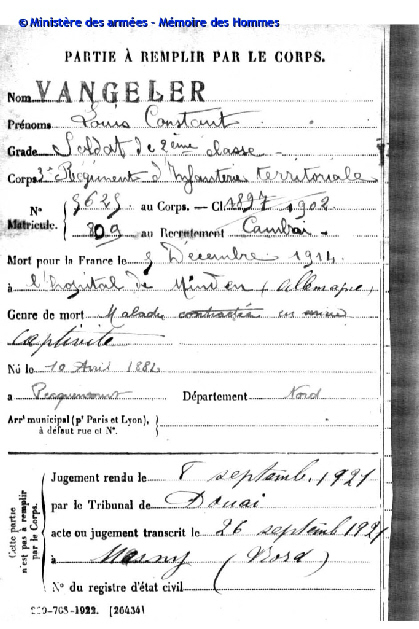 © Ministère des armées - Mémoire des Hommes
PARTIE À REMPLIR PAR LE CORPS.
Nom VANGELER
Prénoms Louis Constant
Grade Soldat de 2ème classe
Corps 3e Régiment d'Infanterie territoriale
N° Matricule. { 5625 au Corps. — Cl. 1897 1902
809 au Recrutement Cambrai
Mort pour la France le 5 Décembre 1914
à l'hôpital de Minden (Allemagne)
Genre de mort Maladie contractée en
captivité
Né le 10 Avril 1882
à Pecquencourt Département Nord
Arrt municipal (pr Paris et Lyon),
à défaut rue et N°.
Cette partie n'est pas à remplir par le Corps.
Jugement rendu le 8 septemb. 1921
par le Tribunal de Douai
acte ou jugement transcrit le 26 septemb 1921
à Masny (Nord)
N° du registre d'état civil
-1922. [26434]